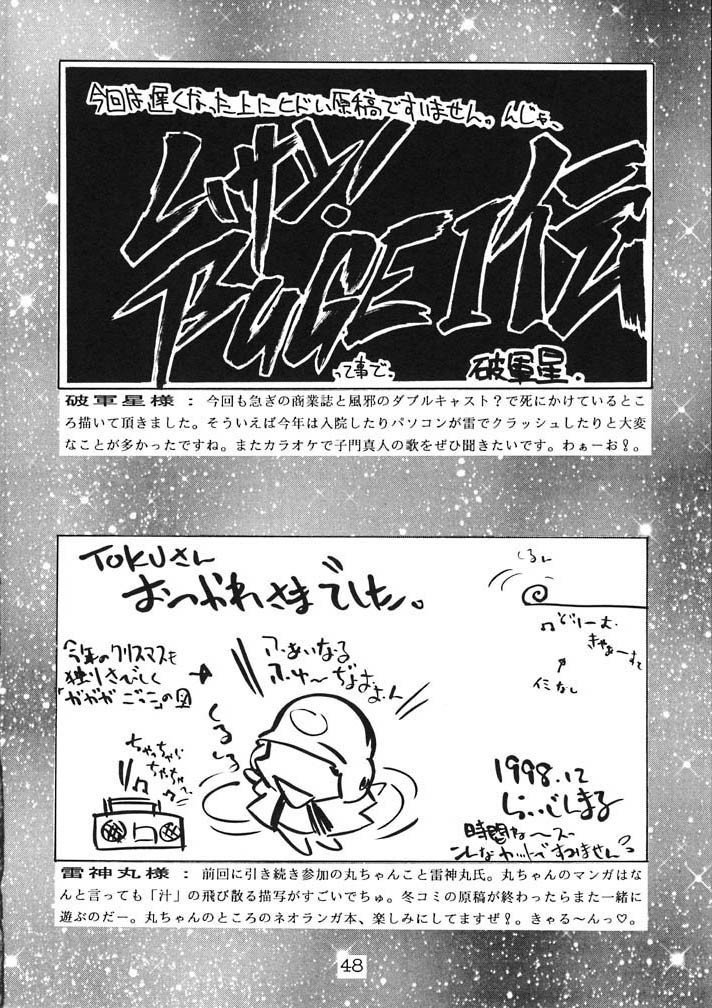 今回は遅くなった上にヒドい原稿ですいません。んじゃ、
BUGEI伝
って事で。
破軍星.
破軍星様：今回も急ぎの商業誌と風邪のダブルキャスト？で死にかけているとこ
ろ描いて頂きました。そういえば今年は入院したりパソコンが雷でクラッシュしたりと大変
なことが多かったですね。またカラオケで子門真人の歌をぜひ聞きたいです。わぁーお！。
TOKUさん
おつかれさまでした。
くるん
♫どりーむ
きゃぁーすと
↑
イミなし
今年のクリスマスも
独りさびしく
「ガガガごっこ」の図
ふぁいなる
ふゅ〜ぢょおおん
くるくる
ちゃっちゃら
ちゃっちゃ〜
1998.12
らいじんまる
時間な〜ス〜
こんなカットですみません
雷神丸様：前回に引き続き参加の丸ちゃんこと雷神丸氏。丸ちゃんのマンガはな
んと言っても「汁」の飛び散る描写がすごいでちゅ。冬コミの原稿が終わったらまた一緒に
遊ぶのだー。丸ちゃんのところのネオランガ本、楽しみにしてますぜ！。きゃる〜んっ♡。
48